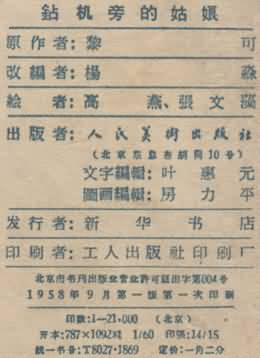 鉆机旁的姑娘
原作者：黎 可
改編者：楊 淼
絵者：高燕、張文
出版者：人民美術出版社
（北京 10号）
文字編輯：叶惠元
图画編輯：房力平
发行者：新华书店
印刷者：工人出版社印刷厂
北京市书刊出版业营业許可証出字第004号
1958年9月第一版第一次印刷
印数：1—21,000（北京）
开本：787×1092 1/60 印張：14/15
統一书号：T8027·1869 定价：一角二分